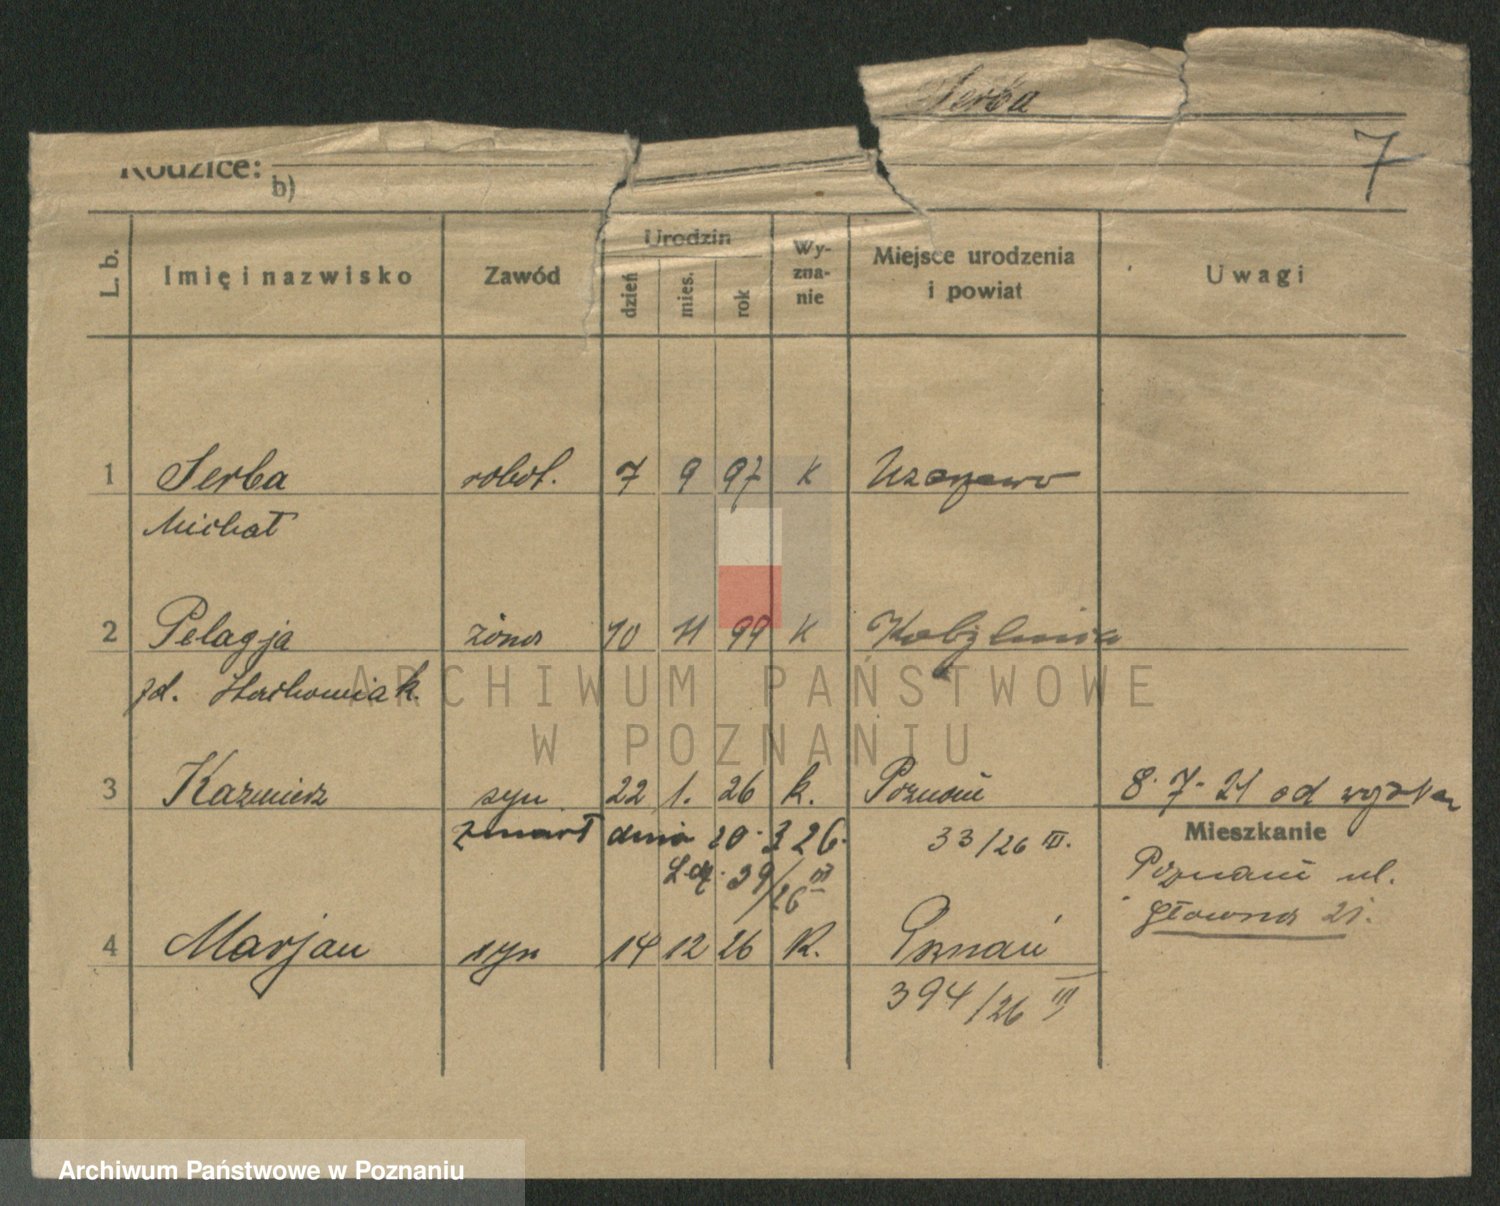 Serba
7
Rodzice:
b)
L. b.
Imię i nazwisko
Zawód
Urodzin
dzień
mies.
rok
Wy-
zna-
nie
Miejsce urodzenia
i powiat
Uwagi
1 Serba robot. 7 9 97 K
Michał
2 Pelagja żona 10 11 99 K
zd. Stachowiak.
3 Kazmierz syn 22 1. 26 k. Poznań 8. 7. 21 od
zmarł dnia 20. 3 26. 33/26 III.
39/26 III
Mieszkanie
Poznań ul.
Główna 21.
4 Marjan syn 14 12 26 K. Poznań
394/26 III
ARCHIWUM PAŃSTWOWE
W POZNANIU
Archiwum Państwowe w Poznaniu